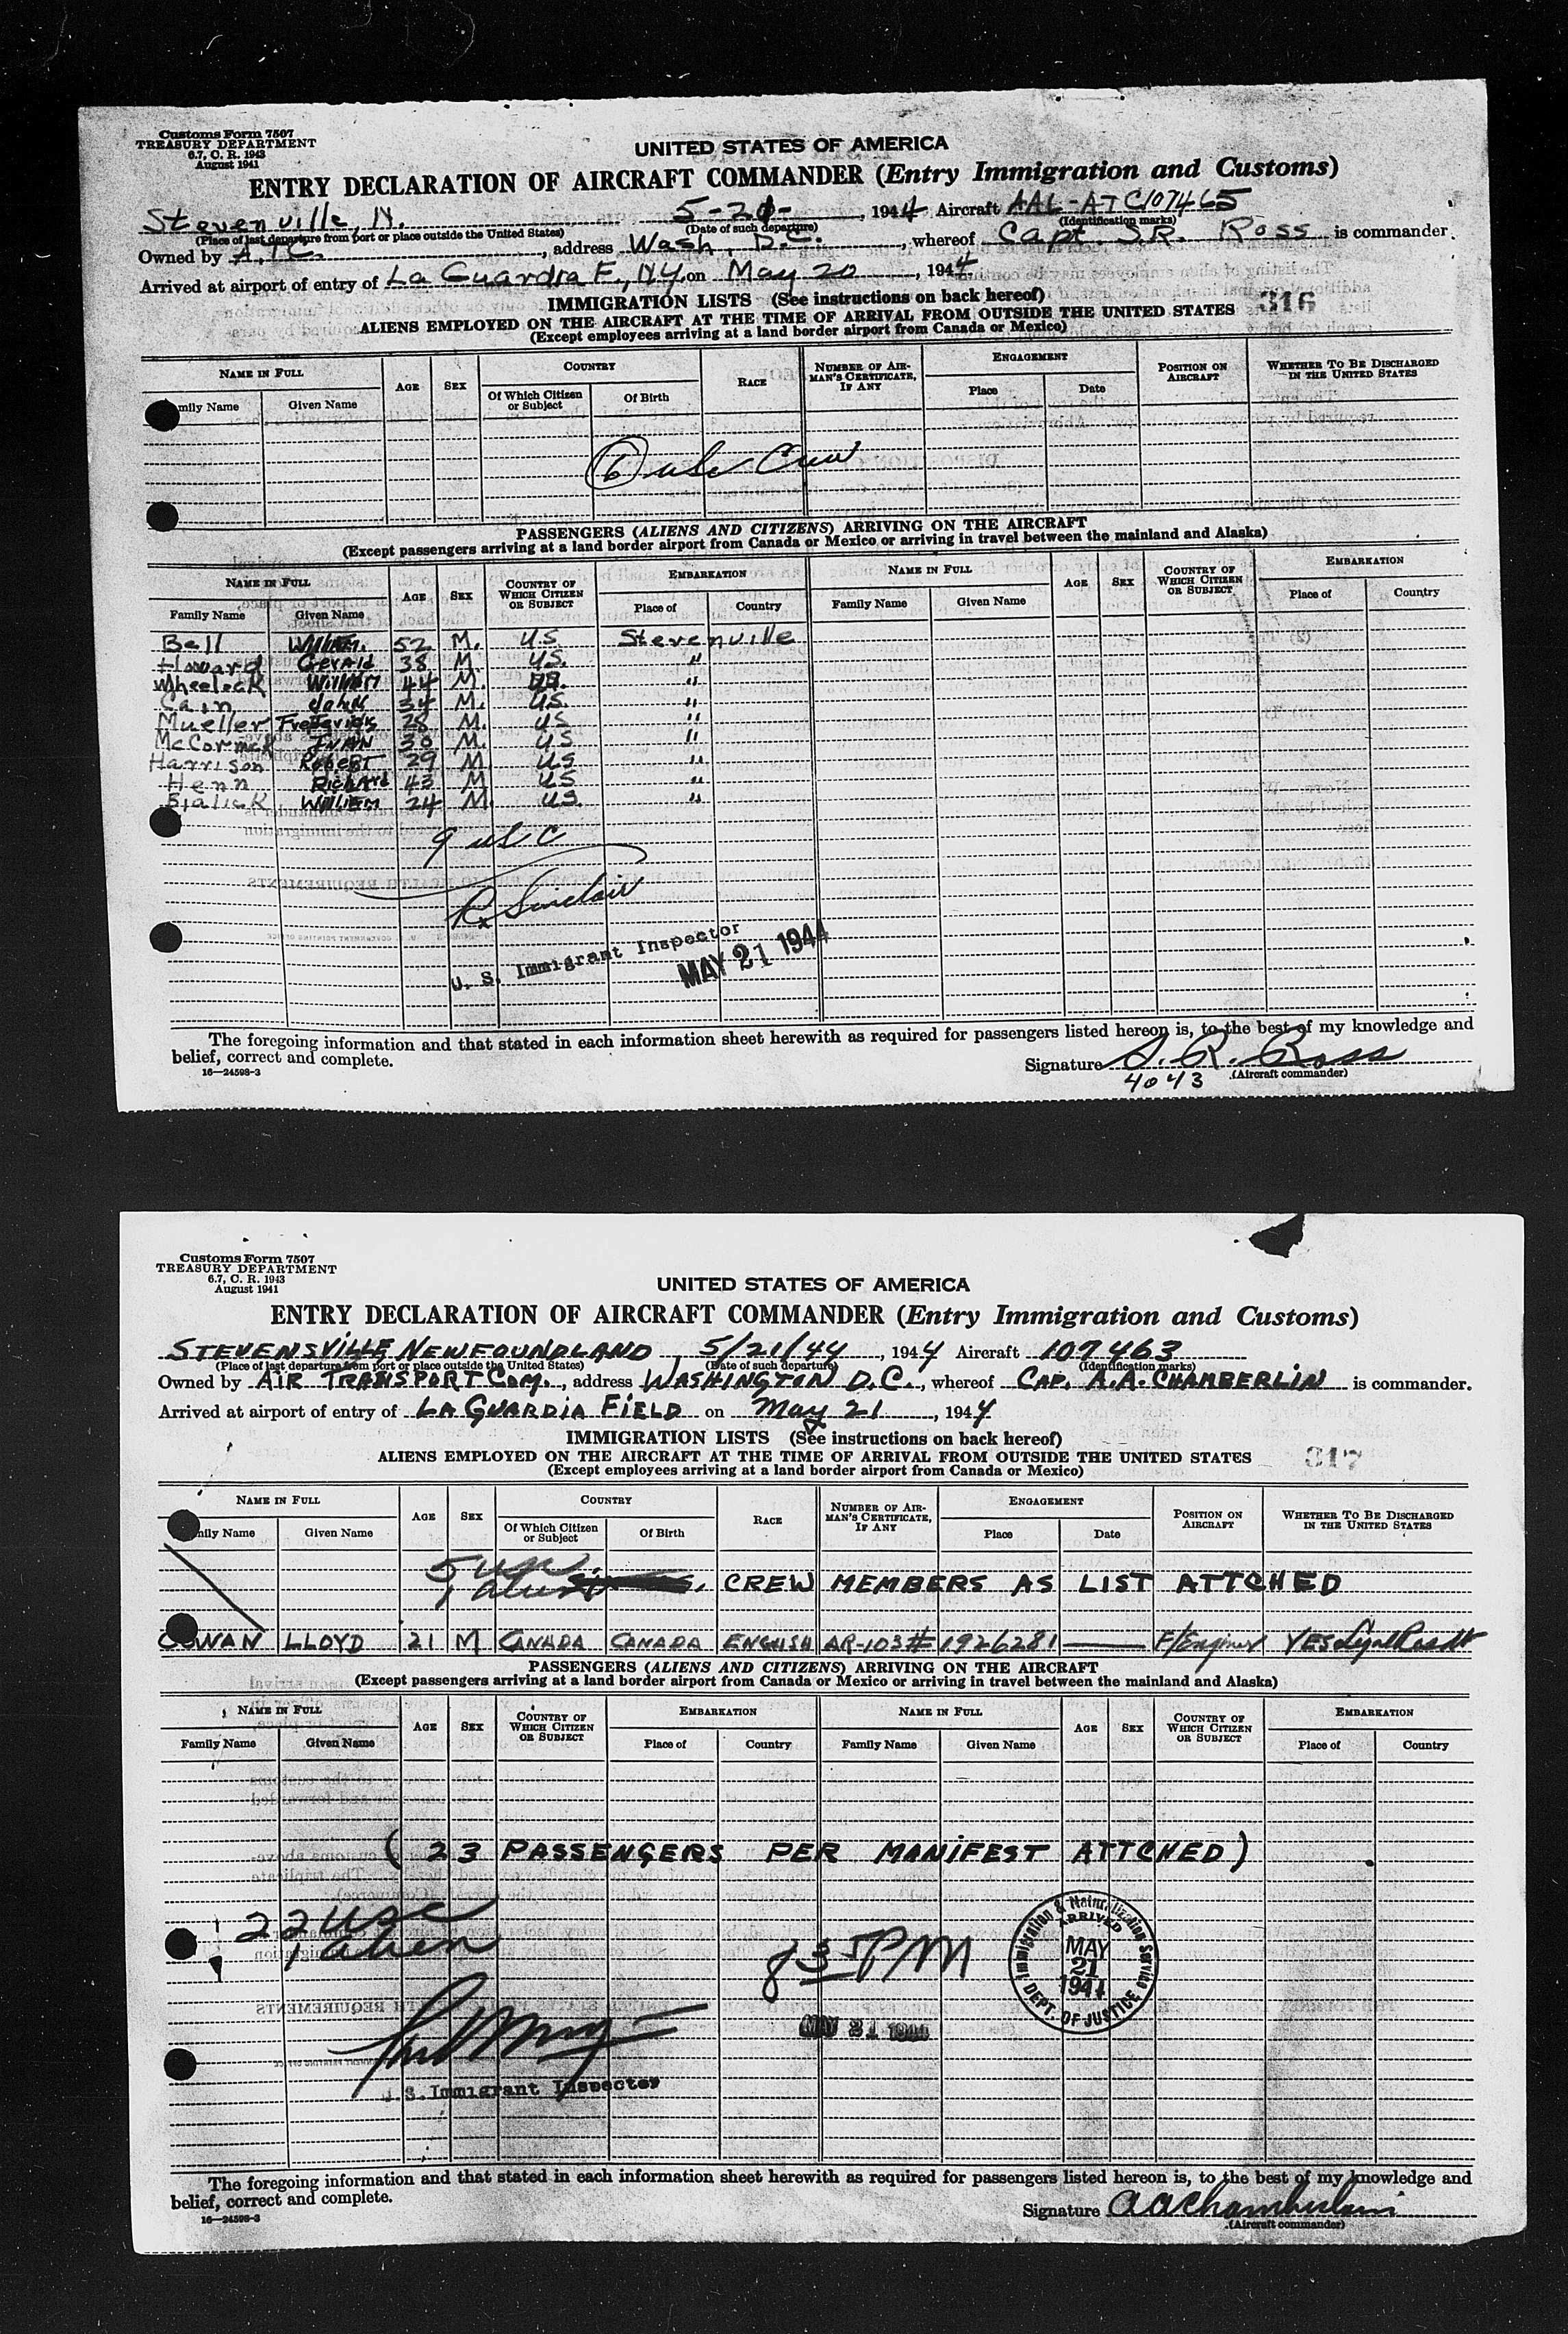 Customs Form 7507
TREASURY DEPARTMENT
6.7, C. R. 1943
August 1941
UNITED STATES OF AMERICA
ENTRY DECLARATION OF AIRCRAFT COMMANDER (Entry Immigration and Customs)
Stevenville, N. 5-20- , 1944 Aircraft AAL-ATC107465
(Place of last departure from port or place outside the United States) (Date of such departure) (Identification marks)
Owned by A.T.C. , address Wash, D.C. , whereof Capt. S.R. Ross is commander.
Arrived at airport of entry of La Guardia F., N.Y. on May 20 , 1944
IMMIGRATION LISTS (See instructions on back hereof)
ALIENS EMPLOYED ON THE AIRCRAFT AT THE TIME OF ARRIVAL FROM OUTSIDE THE UNITED STATES 316
(Except employees arriving at a land border airport from Canada or Mexico)
NAME IN FULL AGE SEX COUNTRY RACE NUMBER OF AIRMAN'S CERTIFICATE, IF ANY ENGAGEMENT POSITION ON AIRCRAFT WHETHER TO BE DISCHARGED IN THE UNITED STATES
mily Name Given Name Of Which Citizen or Subject Of Birth Place Date
6 usc Crew
PASSENGERS (ALIENS AND CITIZENS) ARRIVING ON THE AIRCRAFT
(Except passengers arriving at a land border airport from Canada or Mexico or arriving in travel between the mainland and Alaska)
NAME IN FULL AGE SEX COUNTRY OF WHICH CITIZEN OR SUBJECT EMBARKATION NAME IN FULL AGE SEX COUNTRY OF WHICH CITIZEN OR SUBJECT EMBARKATION
Family Name Given Name Place of Country Family Name Given Name Place of Country
Bell William. 52 M. U.S. Stevenville
Howard Gerald 38 M U.S. "
Wheelock William 44 M. U.S. "
Cain John 34 M. U.S. "
Mueller Frederick 28 M. U.S "
McCormack IVAN 30 M. U.S "
Harrison Robert 29 M. U.S "
Henn Richard 43 M U.S "
William 24 M. U.S. "
9 usc
R Sinclair
U. S. Immigrant Inspector
MAY 21 1944
The foregoing information and that stated in each information sheet herewith as required for passengers listed hereon is, to the best of my knowledge and
belief, correct and complete.
16—24598-3
Signature S. R. Ross
4043 (Aircraft commander)
Customs Form 7507
TREASURY DEPARTMENT
6.7, C. R. 1943
August 1941
UNITED STATES OF AMERICA
ENTRY DECLARATION OF AIRCRAFT COMMANDER (Entry Immigration and Customs)
STEVENSVILLE NEWFOUNDLAND 5/21/44 , 1944 Aircraft 107463
(Place of last departure from port or place outside the United States) (Date of such departure) (Identification marks)
Owned by AIR TRANSPORT COM. , address WASHINGTON D.C. , whereof CAP. A.A. CHAMBERLIN is commander.
Arrived at airport of entry of LA GUARDIA FIELD on May 21 , 1944
IMMIGRATION LISTS (See instructions on back hereof)
ALIENS EMPLOYED ON THE AIRCRAFT AT THE TIME OF ARRIVAL FROM OUTSIDE THE UNITED STATES 317
(Except employees arriving at a land border airport from Canada or Mexico)
NAME IN FULL AGE SEX COUNTRY RACE NUMBER OF AIRMAN'S CERTIFICATE, IF ANY ENGAGEMENT POSITION ON AIRCRAFT WHETHER TO BE DISCHARGED IN THE UNITED STATES
mily Name Given Name Of Which Citizen or Subject Of Birth Place Date
5 usc
1 alien CREW MEMBERS AS LIST ATTCHED
COWAN LLOYD 21 M CANADA CANADA ENGLISH AR-103# 1926281 F/Engineer YES Legal Resdt
PASSENGERS (ALIENS AND CITIZENS) ARRIVING ON THE AIRCRAFT
(Except passengers arriving at a land border airport from Canada or Mexico or arriving in travel between the mainland and Alaska)
NAME IN FULL AGE SEX COUNTRY OF WHICH CITIZEN OR SUBJECT EMBARKATION NAME IN FULL AGE SEX COUNTRY OF WHICH CITIZEN OR SUBJECT EMBARKATION
Family Name Given Name Place of Country Family Name Given Name Place of Country
( 23 PASSENGERS PER MANIFEST ATTCHED )
22 usc
1 alien
8 35 PM
Immigration & Naturalization Service
ARRIVED
MAY
21
1944
DEPT. OF JUSTICE
MAY 21 1944
U. S. Immigrant Inspector
The foregoing information and that stated in each information sheet herewith as required for passengers listed hereon is, to the best of my knowledge and
belief, correct and complete.
16—24598-3
Signature AA Chamberlain
(Aircraft commander)